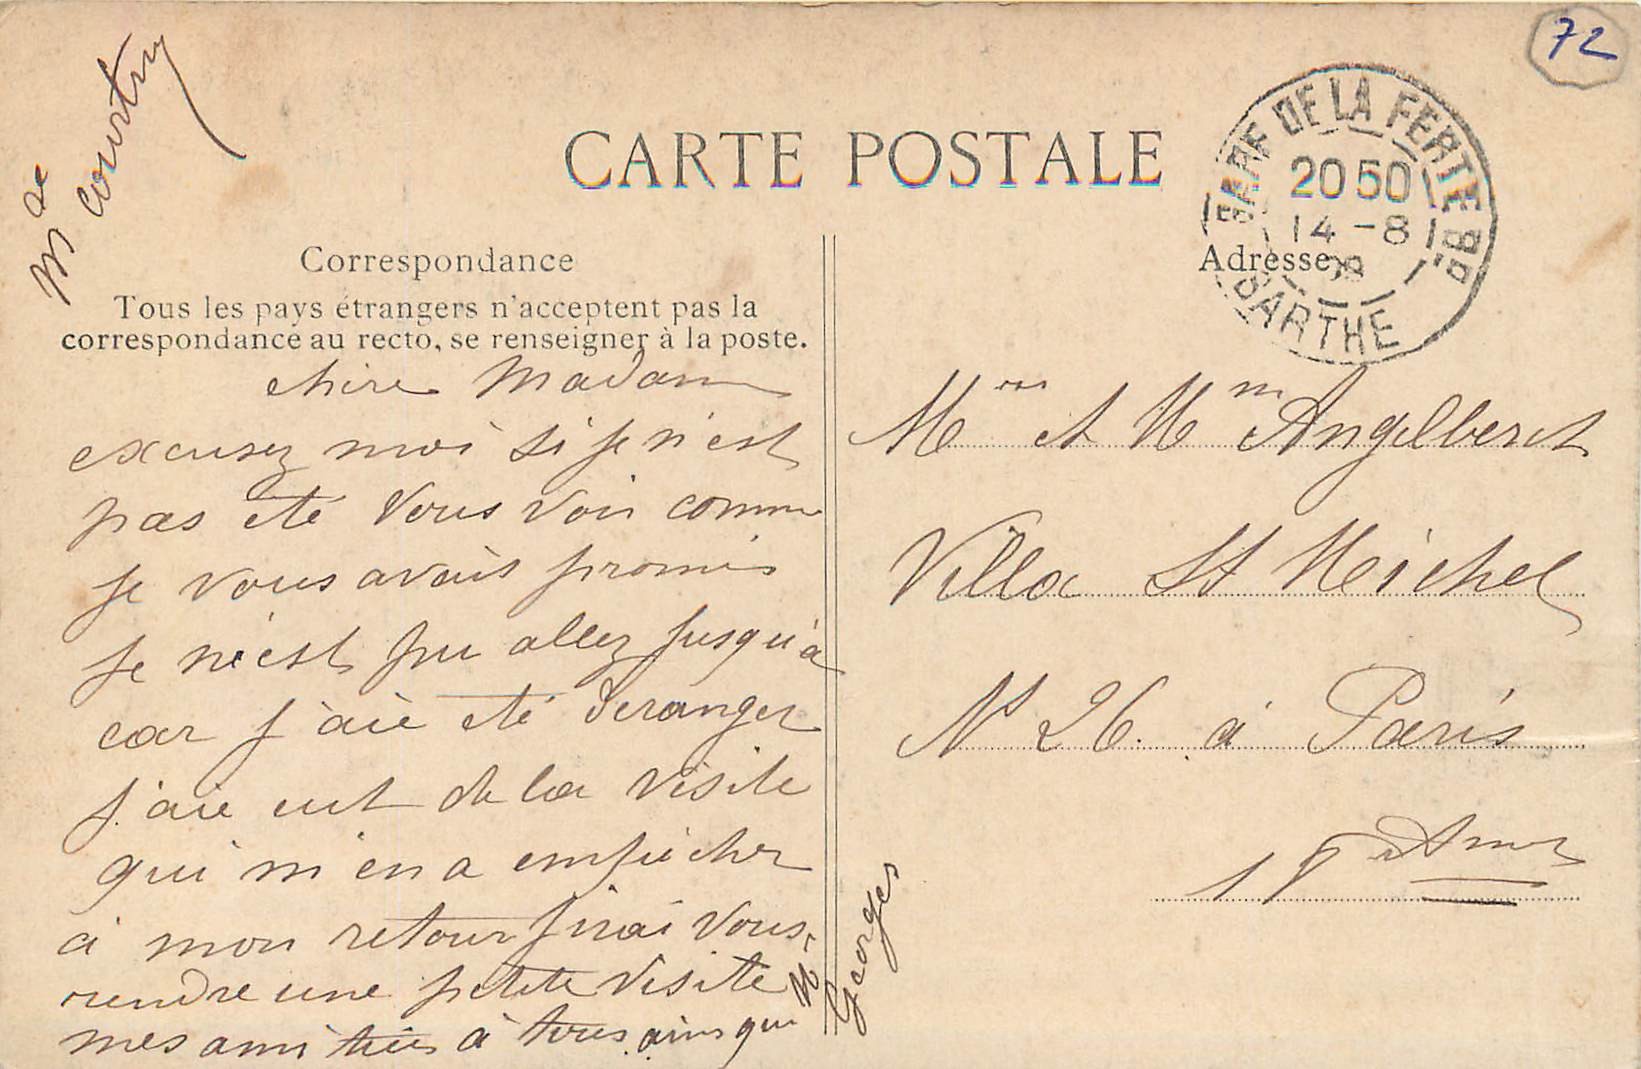 72
Mde
Courtry
CARTE POSTALE
GARE DE LA FERTE-BB
20 50
14-8
SARTHE
Correspondance
Tous les pays étrangers n'acceptent pas la
correspondance au recto, se renseigner à la poste.
Adresse
chère Madame
excusez moi si je n'est
pas été vous voir comme
je vous avais promis
je n'est pu allez jusqu'a
car j'aie été déranger
j'aie eut de la visite
qui m'en a empêcher
à mon retour j'irai vous
rendre une petite visite
mes amitiés à tous ainsi que Mr
Georges
Mr et Mme Angelbert
Villa St Michel
No 26 à Paris
18e Arr